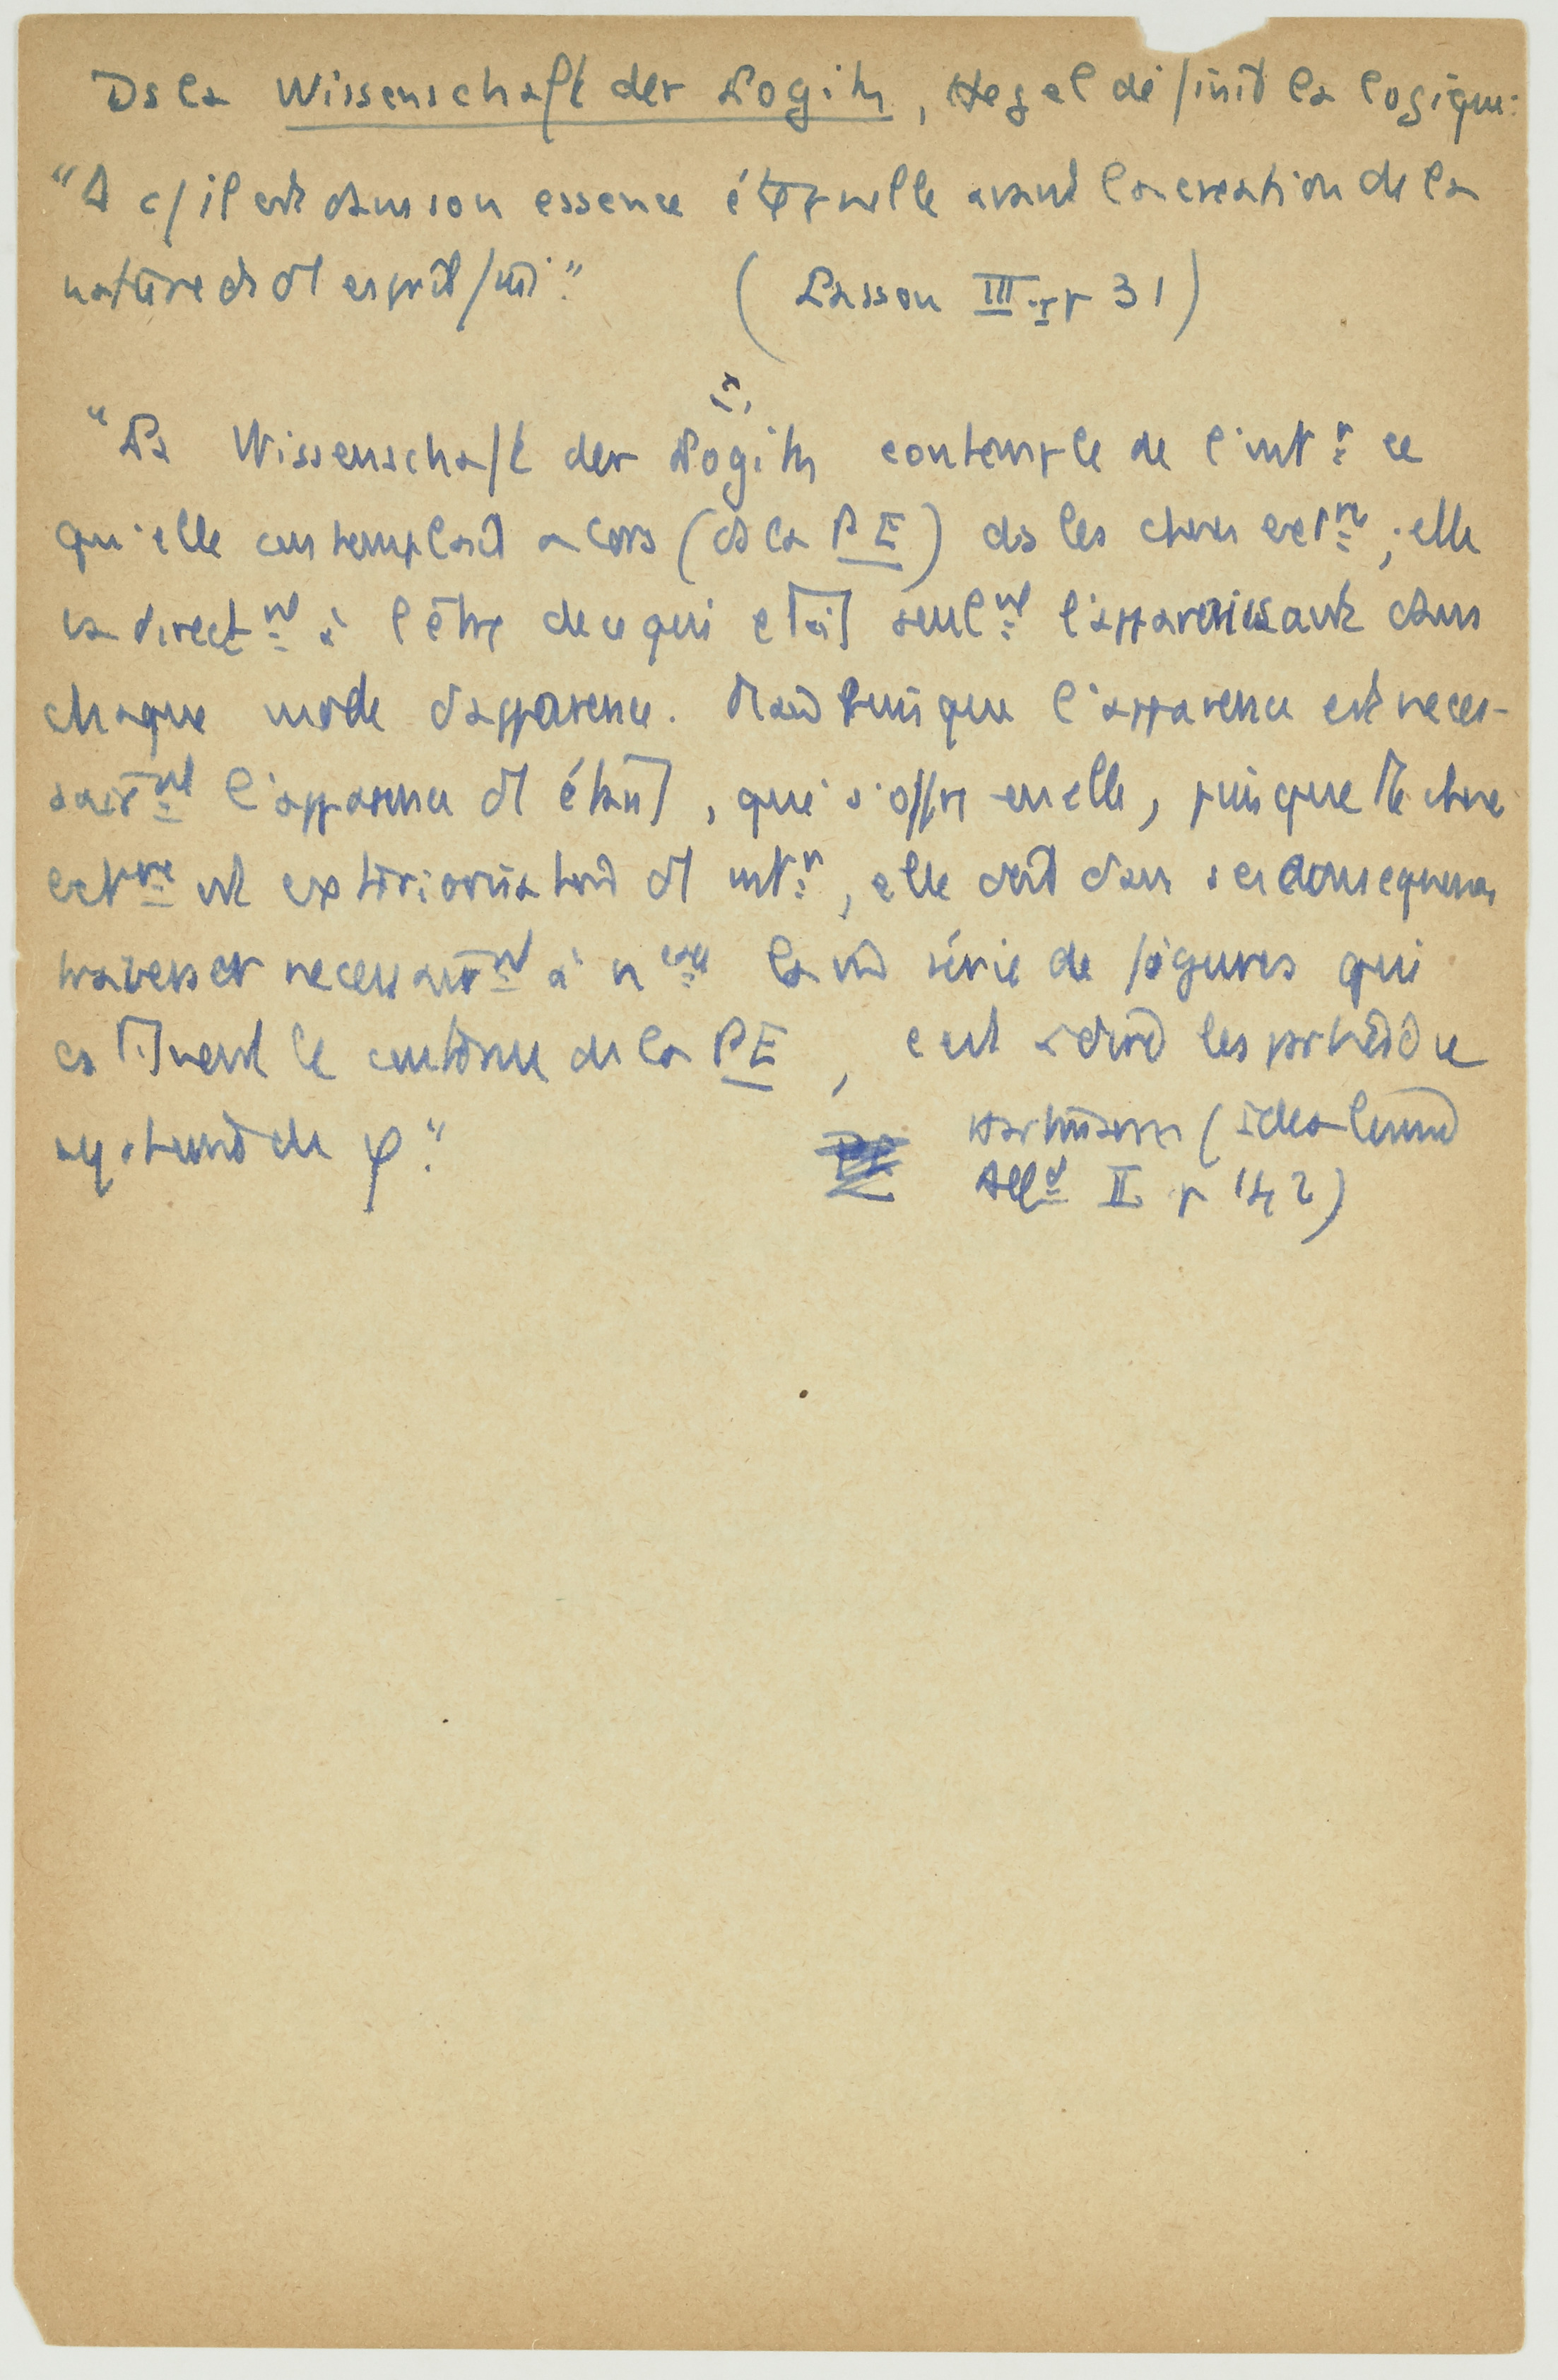 Ds la Wissenschaft der Logik, Hegel définit la logique:
"D c/ il est dans son essence éternelle avant la creation de la
nature et de l'esprit fini." (Lasson III-I p 31)
"La Wissenschaft der Logik contemple de l'intr ce
qu'elle contemplait alors (ds la PE) ds les choses extres; elle
va directmt à l'être de ce qui était seulmt l'apparaissant dans
chaque mode d'apparence. Mais puisque l'apparence est neces-
sairmt l'apparence de l'étant, qui s'offre en elle, puisque chose
extre est extériorisation de l'intr, elle doit dans ses consequences
traverser necessairmt à nveau la série de figures qui
constituent le contenu de la PE, c'est à dire les
systeme de φ." Hartmann (Idealisme
Alld II p 142)